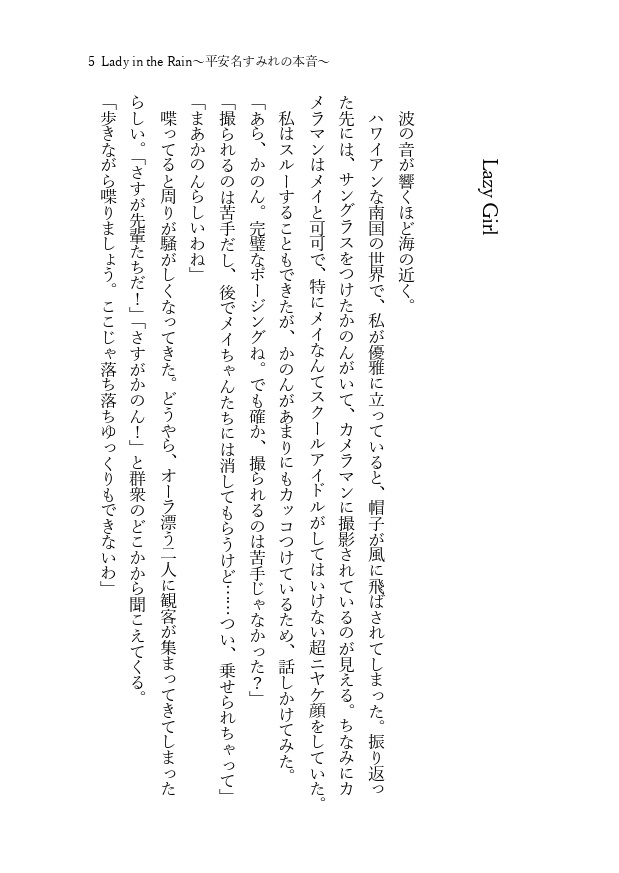 5 Lady in the Rain～平安名すみれの本音～
Lazy Girl
波の音が響くほど海の近く。
ハワイアンな南国の世界で、私が優雅に立っていると、帽子が風に飛ばされてしまった。振り返っ
た先には、サングラスをつけたかのんがいて、カメラマンに撮影されているのが見える。ちなみにカ
メラマンはメイと可可で、特にメイなんてスクールアイドルがしてはいけない超ニヤケ顔をしていた。
私はスルーすることもできたが、かのんがあまりにもカッコつけているため、話しかけてみた。
「あら、かのん。完璧なポージングね。でも確か、撮られるのは苦手じゃなかった？」
「撮られるのは苦手だし、後でメイちゃんたちには消してもらうけど……つい、乗せられちゃって」
「まあかのんらしいわね」
喋ってると周りが騒がしくなってきた。どうやら、オーラ漂う二人に観客が集まってきてしまった
らしい。「さすが先輩たちだ！」「さすがかのん！」と群衆のどこかから聞こえてくる。
「歩きながら喋りましょう。ここじゃ落ち落ちゆっくりもできないわ」